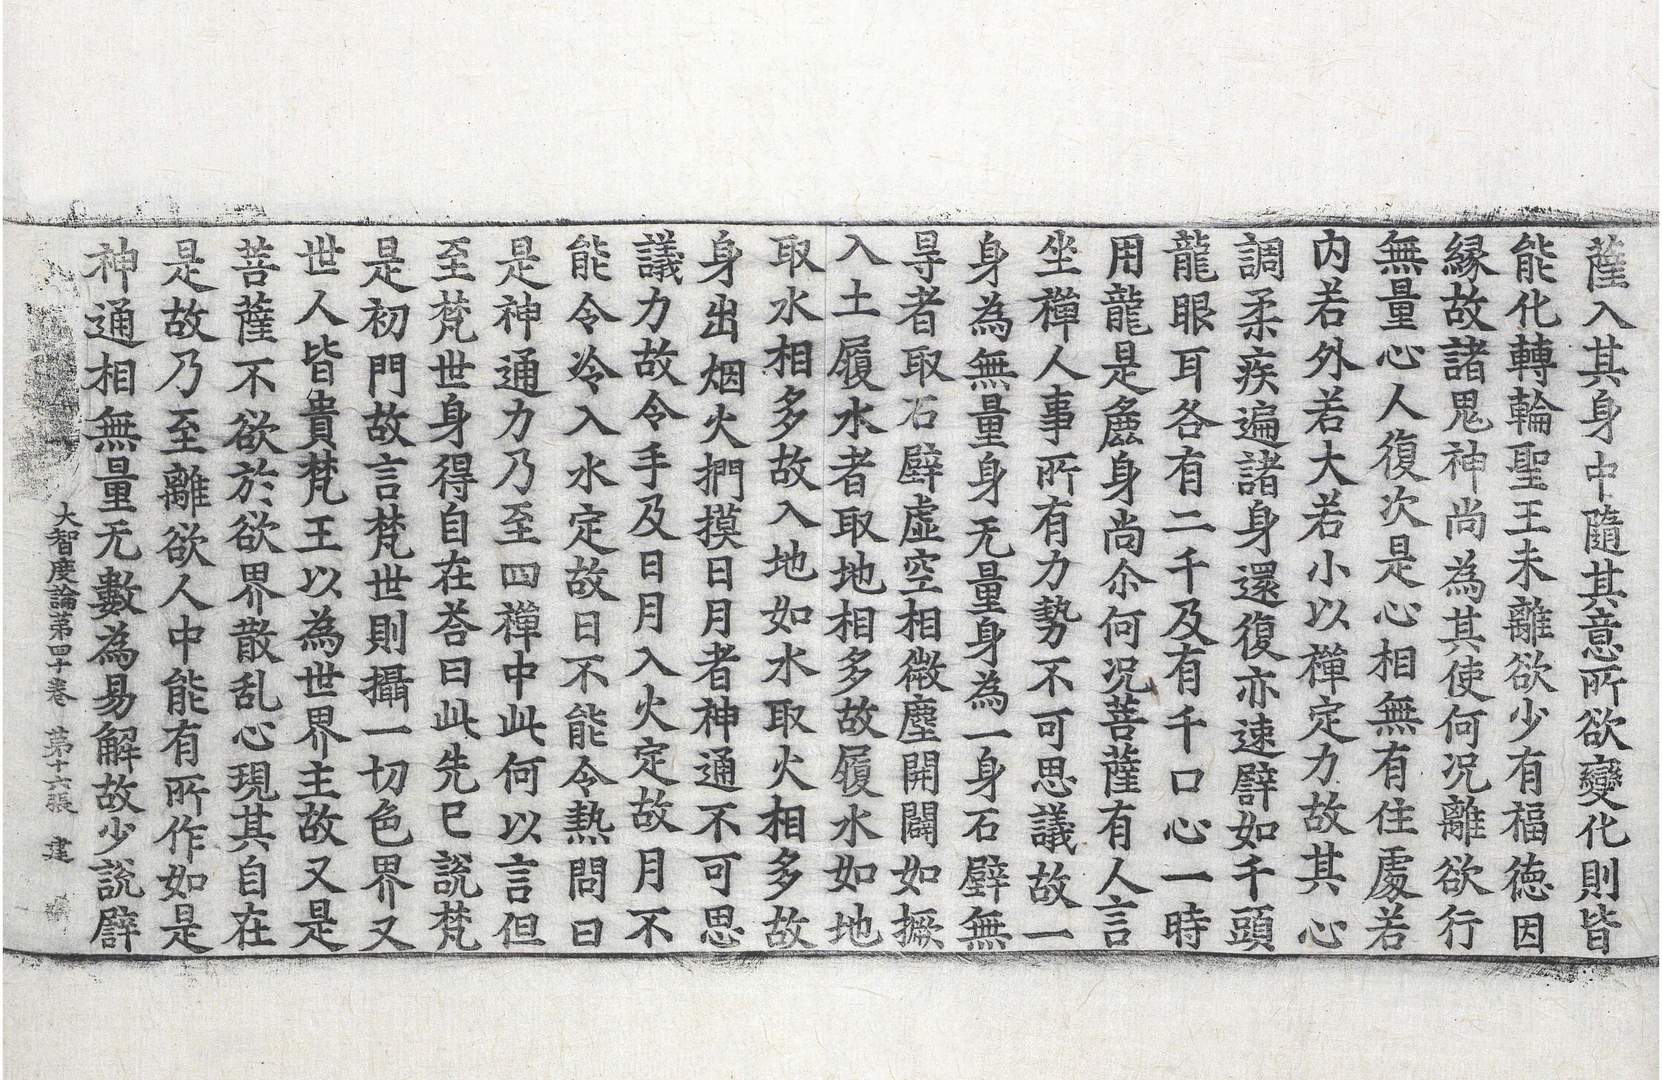 薩入其身中隨其意所欲變化則皆
能化轉輪聖王未離欲少有福德因
緣故諸鬼神尚為其使何況離欲行
無量心人復次是心相無有住處若
内若外若大若小以禪定力故其心
調柔疾遍諸身還復亦速譬如千頭
龍眼耳各有二千及有千口心一時
用龍是麁身尚尒何況菩薩有人言
坐禪人事所有力勢不可思議故一
身為無量身无量身為一身石壁無
㝵者取石壁虛空相微塵開闢如撅
入土履水者取地相多故履水如地
取水相多故入地如水取火相多故
身出烟火捫摸日月者神通不可思
議力故令手及日月入火定故月不
能令冷入水定故日不能令熱問曰
是神通力乃至四禪中此何以言但
至梵世身得自在荅曰此先已說梵
是初門故言梵世則攝一切色界又
世人皆貴梵王以為世界主故又是
菩薩不欲於欲界散乱心現其自在
是故乃至離欲人中能有所作如是
神通相無量无數為易解故少說譬
大智度論第四十卷 第十六張 建